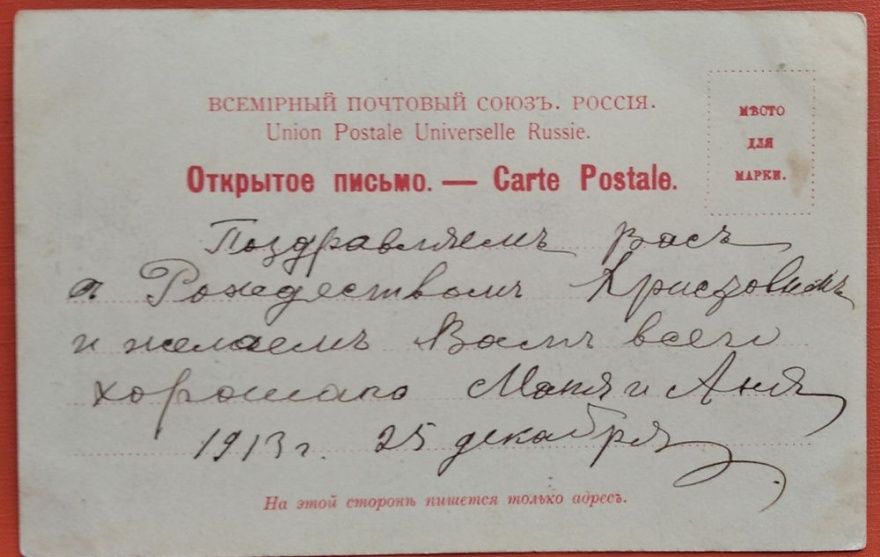 ВСЕМІРНЫЙ ПОЧТОВЫЙ СОЮЗЪ. РОССІЯ.
Union Postale Universelle Russie.
Открытое письмо. — Carte Postale.
МѢСТО
ДЛЯ
МАРКИ.
Поздравляемъ Васъ
с Рождествомъ Христовымъ
и желаемъ Вамъ всего
хорошаго Маня и Аня
1913 г. 25 декабря
На этой сторонѣ пишется только адресъ.